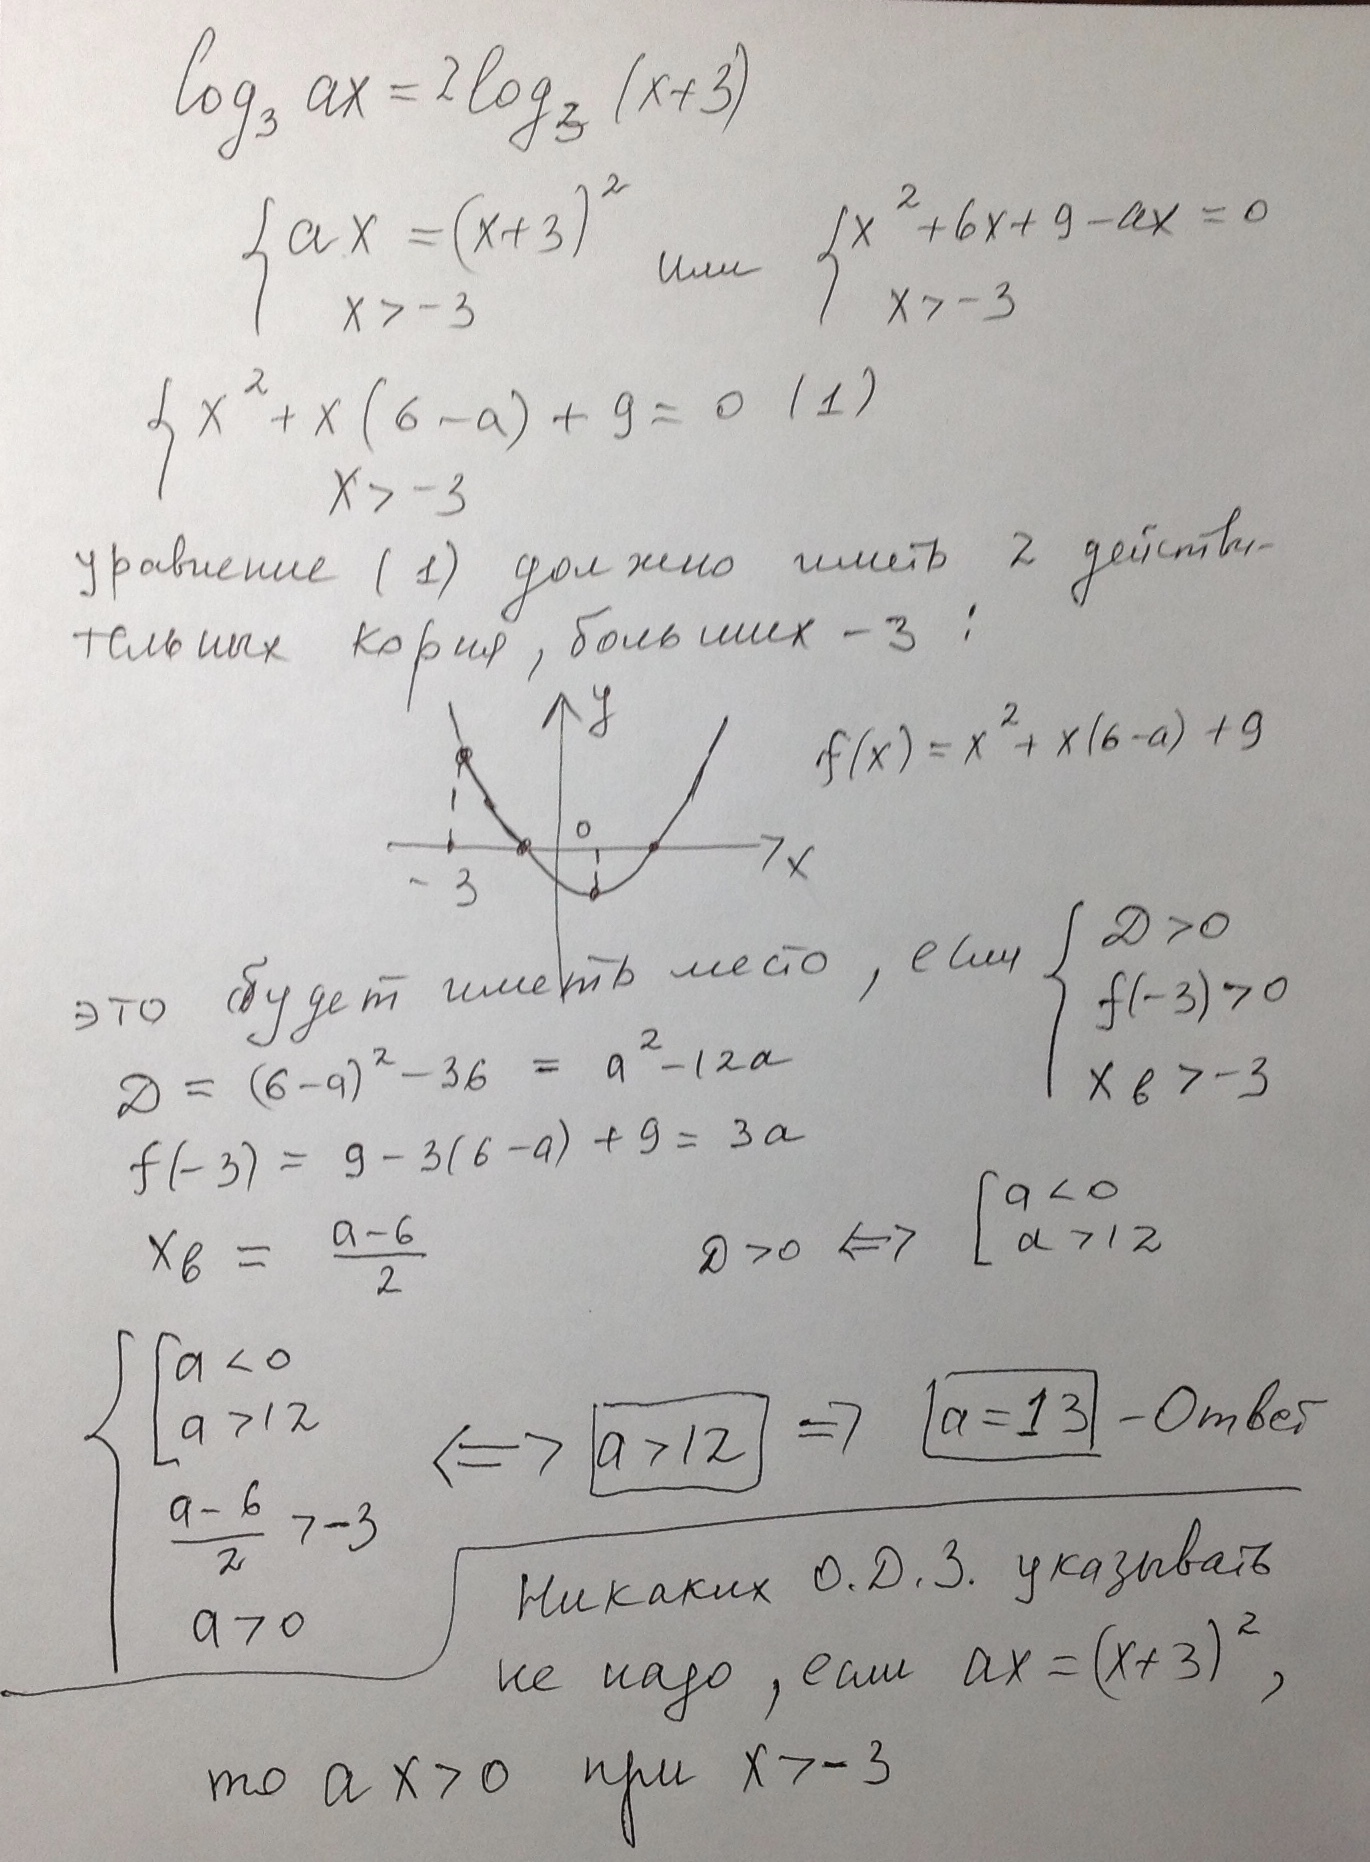 log₃ ax = 2log₃ (x+3)
{ ax = (x+3)², x > -3 или { x² + 6x + 9 - ax = 0, x > -3
{ x² + x(6-a) + 9 = 0 (1)
x > -3
уравнение (1) должно иметь 2 действи-
тельных корня, больших -3 :
y
f(x) = x² + x(6-a) + 9
0
x
-3
это будет иметь место, если { D > 0
f(-3) > 0
x в > -3
D = (6-a)² - 36 = a² - 12a
f(-3) = 9 - 3(6-a) + 9 = 3a
xв = (a-6)/2
D > 0 <=> [ a < 0
a > 12
{ [ a < 0
a > 12
(a-6)/2 > -3
a > 0
<=> a > 12 => a = 13 - Ответ
Никаких О.Д.З. указывать
не надо, если ax = (x+3)²,
то ax > 0 при x > -3